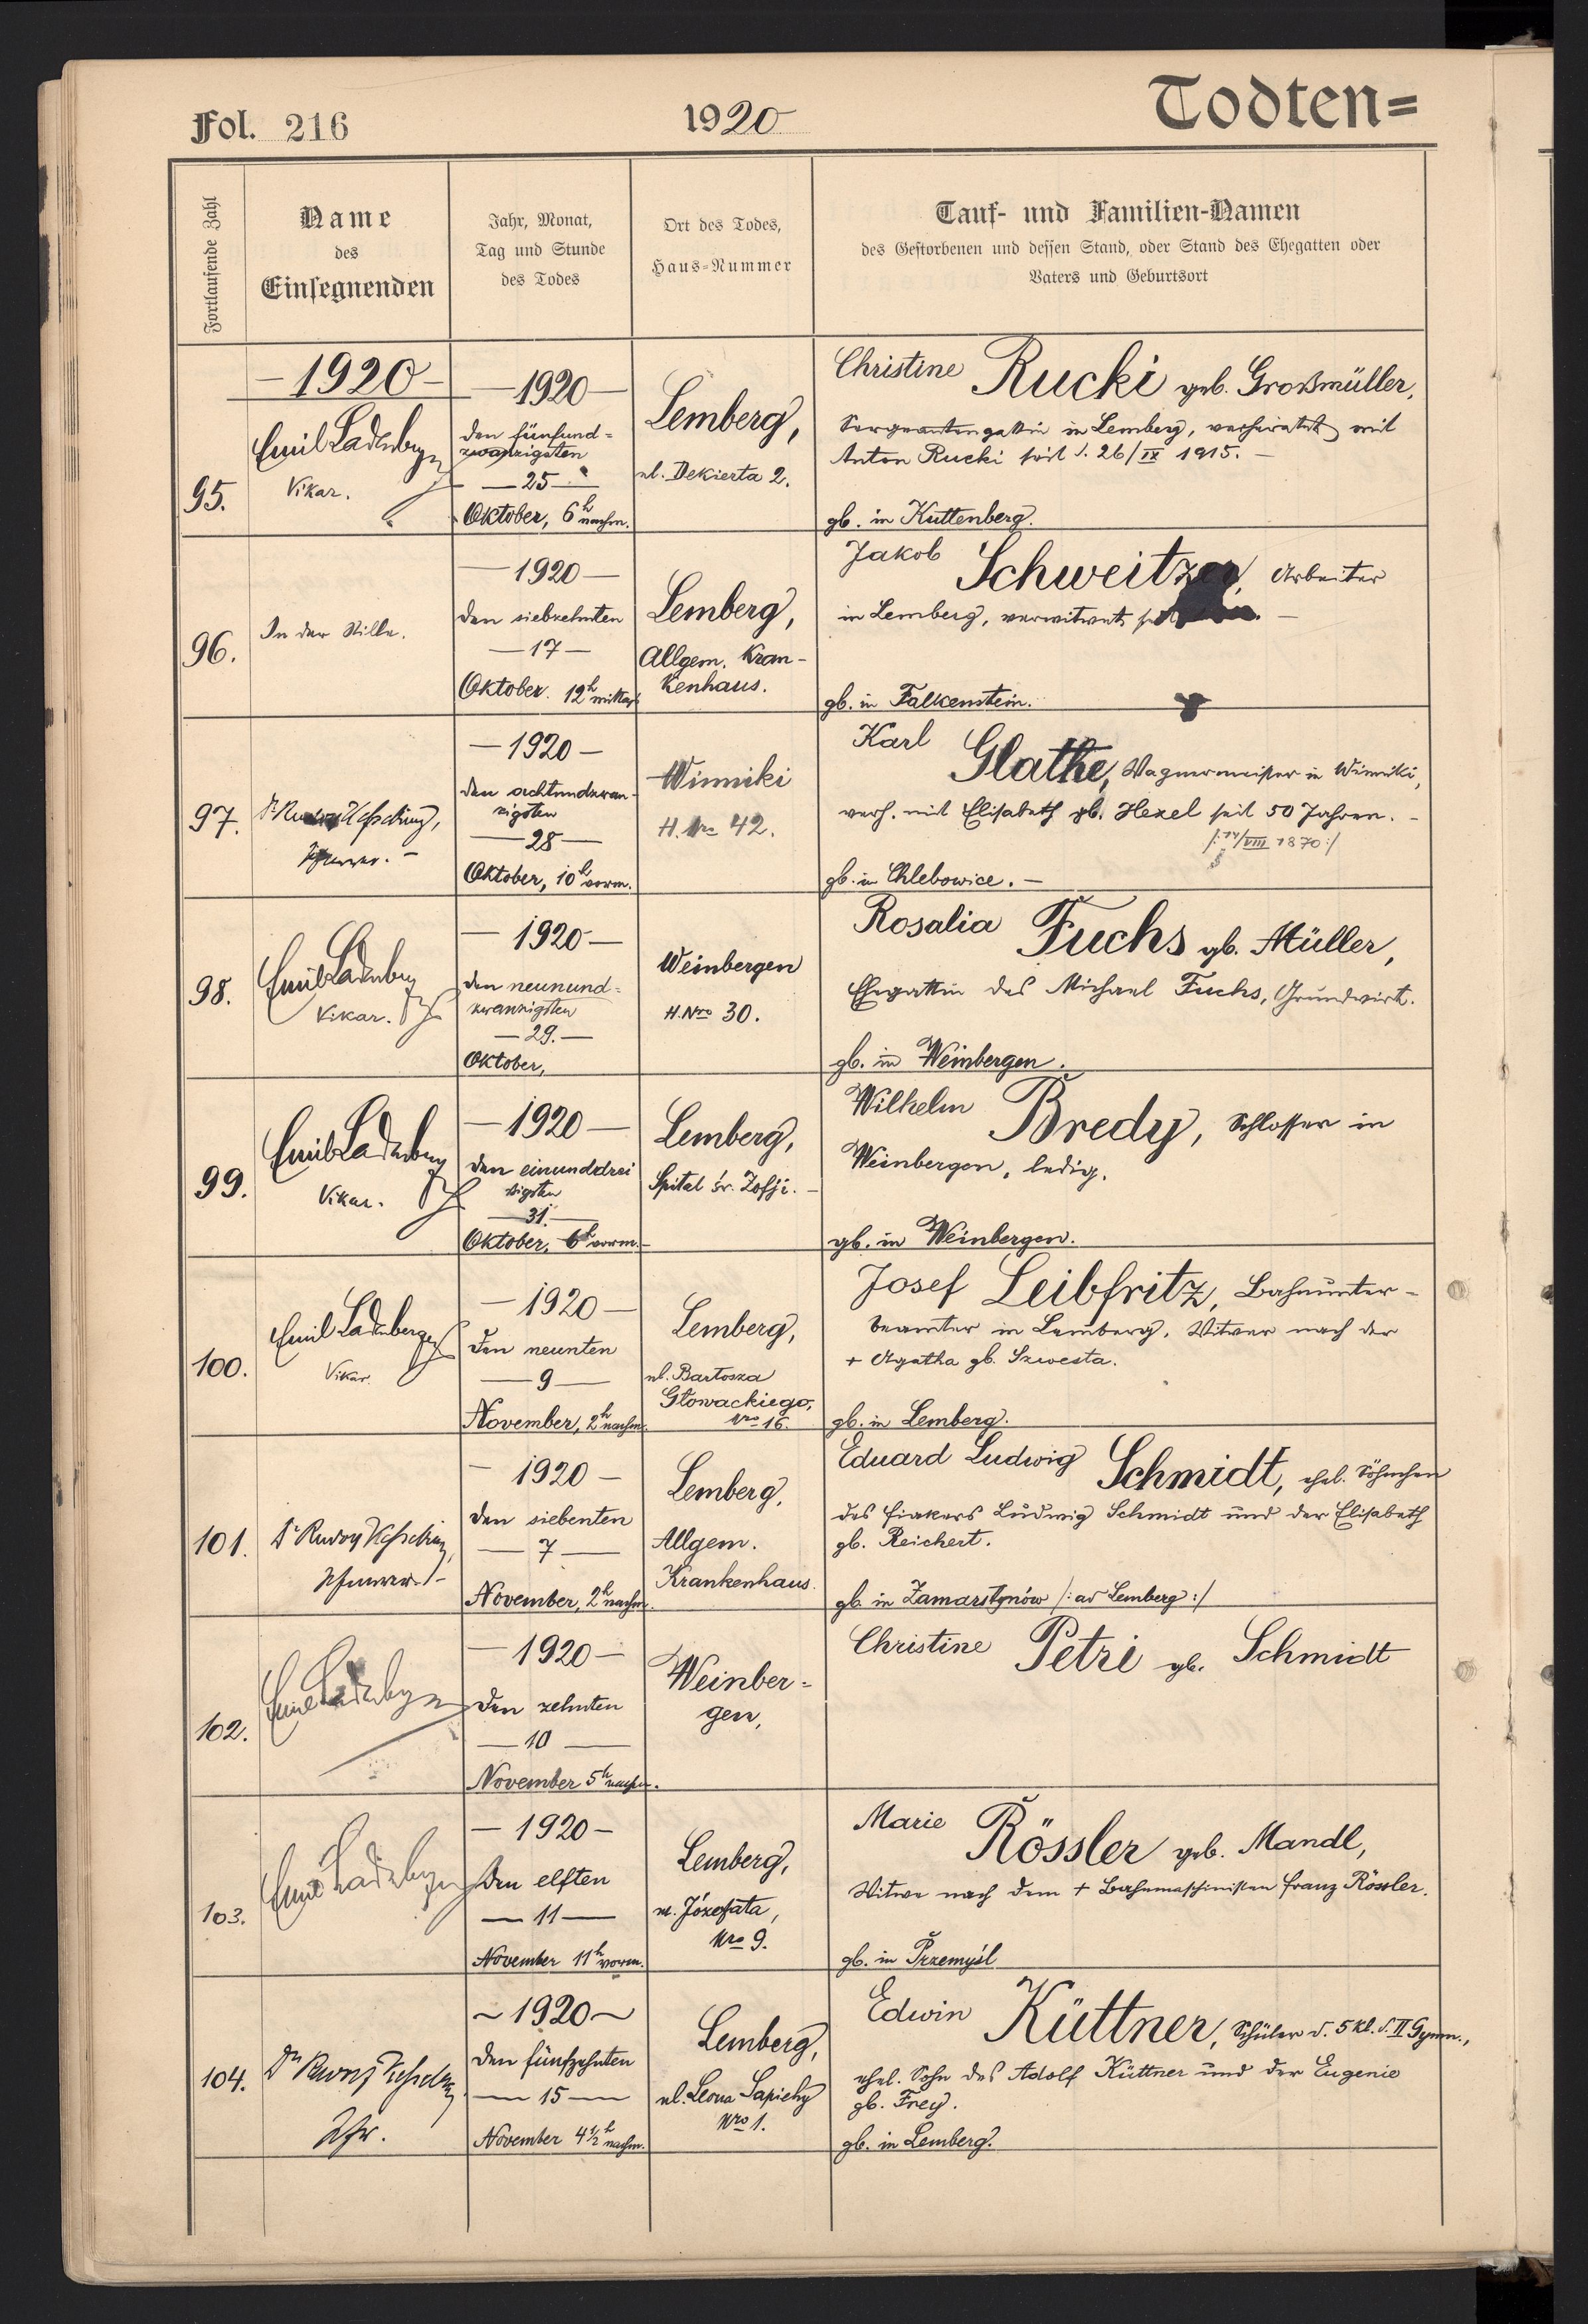 Fol. 216
1920
Todten=
Fortlaufende Zahl
Name
des
Einsegnenden
Jahr, Monat,
Tag und Stunde
des Todes
Ort des Todes,
Haus-Nummer
Tauf- und Familien-Namen
des Gestorbenen und dessen Stand, oder Stand des Ehegatten oder
Vaters und Geburtsort
— 1920 —
95.
Emil Ladenberger
Vikar.
— 1920 —
den fünfund=
zwanzigsten
— 25 —
Oktober, 6h nachm.
Lemberg,
ul. Dekierta 2.
Christine Rucki geb. Großmüller,
Sergeantengattin in Lemberg, verheiratet mit
Anton Rucki seit d. 26/IX 1915. —
gb. in Kuttenberg.
96.
In der Stille.
— 1920 —
den siebzehnten
— 17 —
Oktober. 12h mittag
Lemberg,
Allgem. Kran-
kenhaus.
Jakob Schweitzer, Arbeiter
in Lemberg, verwitwet —
gb. in Falkenstein.
97.
Dr Kesselring,
Pfarrer. —
— 1920 —
den achtundzwan-
zigsten
— 28 —
Oktober, 10h vorm.
Winniki
H. Nro 42.
Karl Glathe, Wagnermeister in Winniki,
verh. mit Elisabeth gb. Hexel seit 50 Jahren. —
/VIII 1870 :/
gb. in Chlebowice. —
98.
Emil Ladenberger
Vikar.
— 1920 —
den neunund=
zwanzigsten
— 29. —
Oktober,
Weinbergen
H. Nro 30.
Rosalia Fuchs gb. Müller,
Ehegattin des Michael Fuchs, Grundwirt.
gb. in Weinbergen.
99.
Emil Ladenberger
Vikar.
— 1920 —
den einunddrei
ßigsten
— 31. —
Oktober, 6h vorm. —
Lemberg,
Spital św. Zofji. —
Wilhelm Bredy, Schlosser in
Weinbergen, ledig.
gb. in Weinbergen.
100.
Emil Ladenberger
Vikar
— 1920 —
den neunten
— 9 —
November, 2h nachm.
Lemberg,
ul. Bartosza
Głowackiego,
Nro 16.
Josef Leibfritz, Bahnunter-
beamter in Lemberg, Witwer nach der
+ Agatha gb. Szwesta.
gb. in Lemberg.
101.
Dr Rudolf Kesselring,
Pfarrer. —
— 1920 —
den siebenten
— 7 —
November, 2h nachm.
Lemberg,
Allgem.
Krankenhaus.
Eduard Ludwig Schmidt, ehel. Söhnchen
des Fiakers Ludwig Schmidt und der Elisabeth
gb. Reichert.
gb. in Zamarstynów /: ad Lemberg :/
102.
Emil Ladenberger
— 1920 —
den zehnten
— 10 —
November 5h nachm.
Weinber=
gen,
Christine Petri gb. Schmidt
103.
Emil Ladenberger
— 1920 —
den elften
— 11 —
November 11h vorm.
Lemberg,
ul. Józefata,
Nro 9.
Marie Rössler geb. Mandl,
Witwe nach dem + Bahnmaschinisten Franz Rössler.
gb. in Przemyśl
104.
Dr Rudolf Kesselring
Pfr.
~ 1920 ~
den fünfzehnten
— 15 —
November 4½h nachm.
Lemberg,
ul. Leona Sapiehy
Nro 1.
Edwin Küttner, Schüler d. 5 Kl. d. II Gymn.,
ehel. Sohn des Adolf Küttner und der Eugenie
gb. Frey.
gb. in Lemberg.